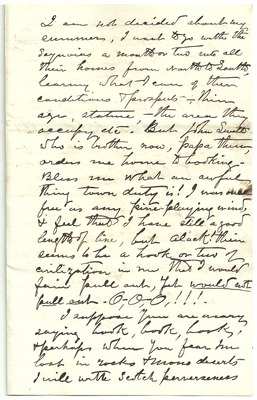 I am not decided about my
summers, I want to go with the
Sequoias a month or two into all
their homes from north to south
learng what I can of their
conditions & prospects - their
age, stature, - the area they
occupy, etc. But John Swett
who is brother now, papa then,
orders me home to booking. -
Bless me what an awful
thing town duty is! I was once
free as any pine playing wind,
& feel that I have still a good
length of line, but alack! there
seems to be a hook or two of
civilization in me that I would
fain pull out, yet would not
pull out - O-O-O,!!!-
I suppose you are weary
saying book, book, book,
& perhaps when you fear Im
lost in rocks & mono deserts
I will with Scotch perverseness